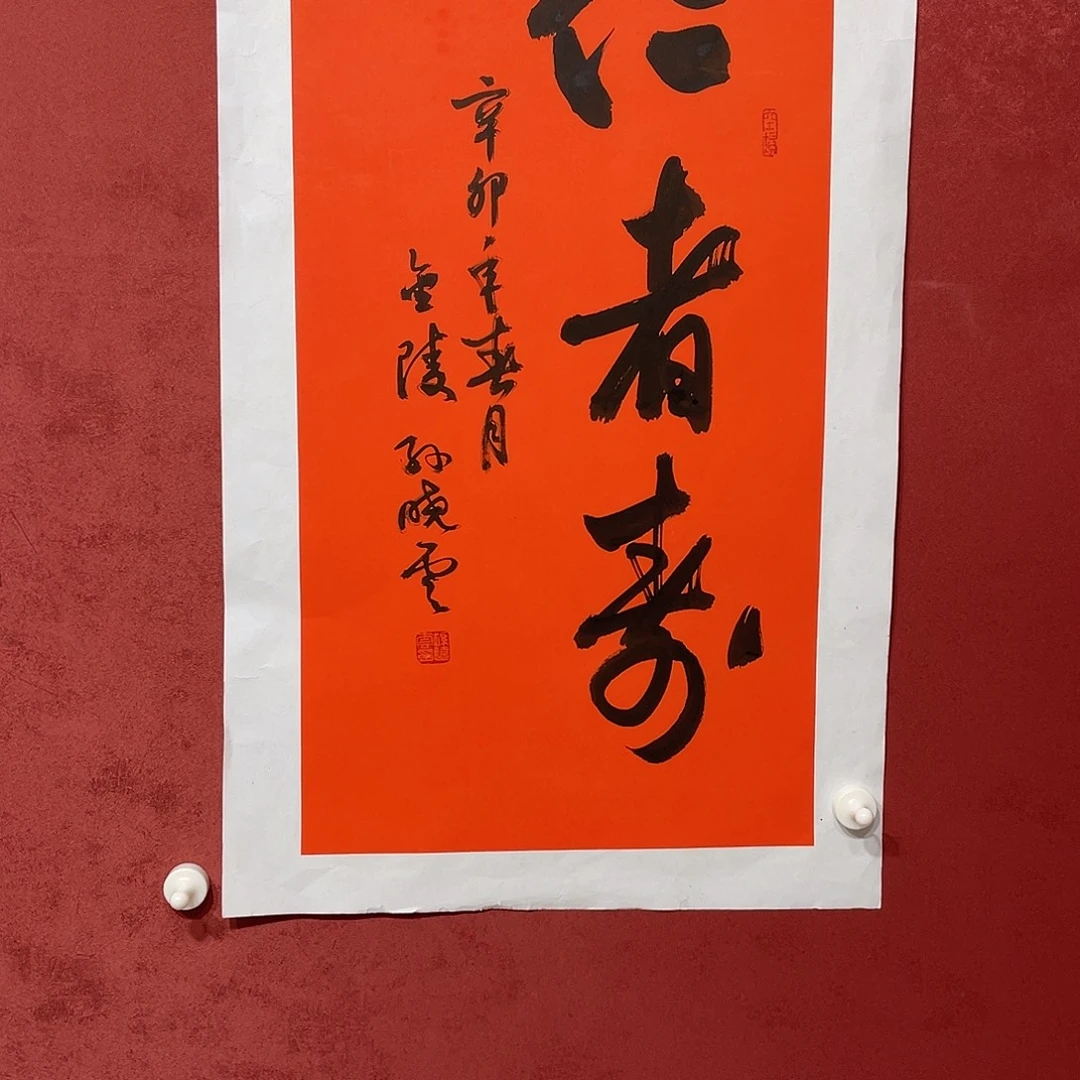 者寿
辛卯年春月
金陵 孙晓云